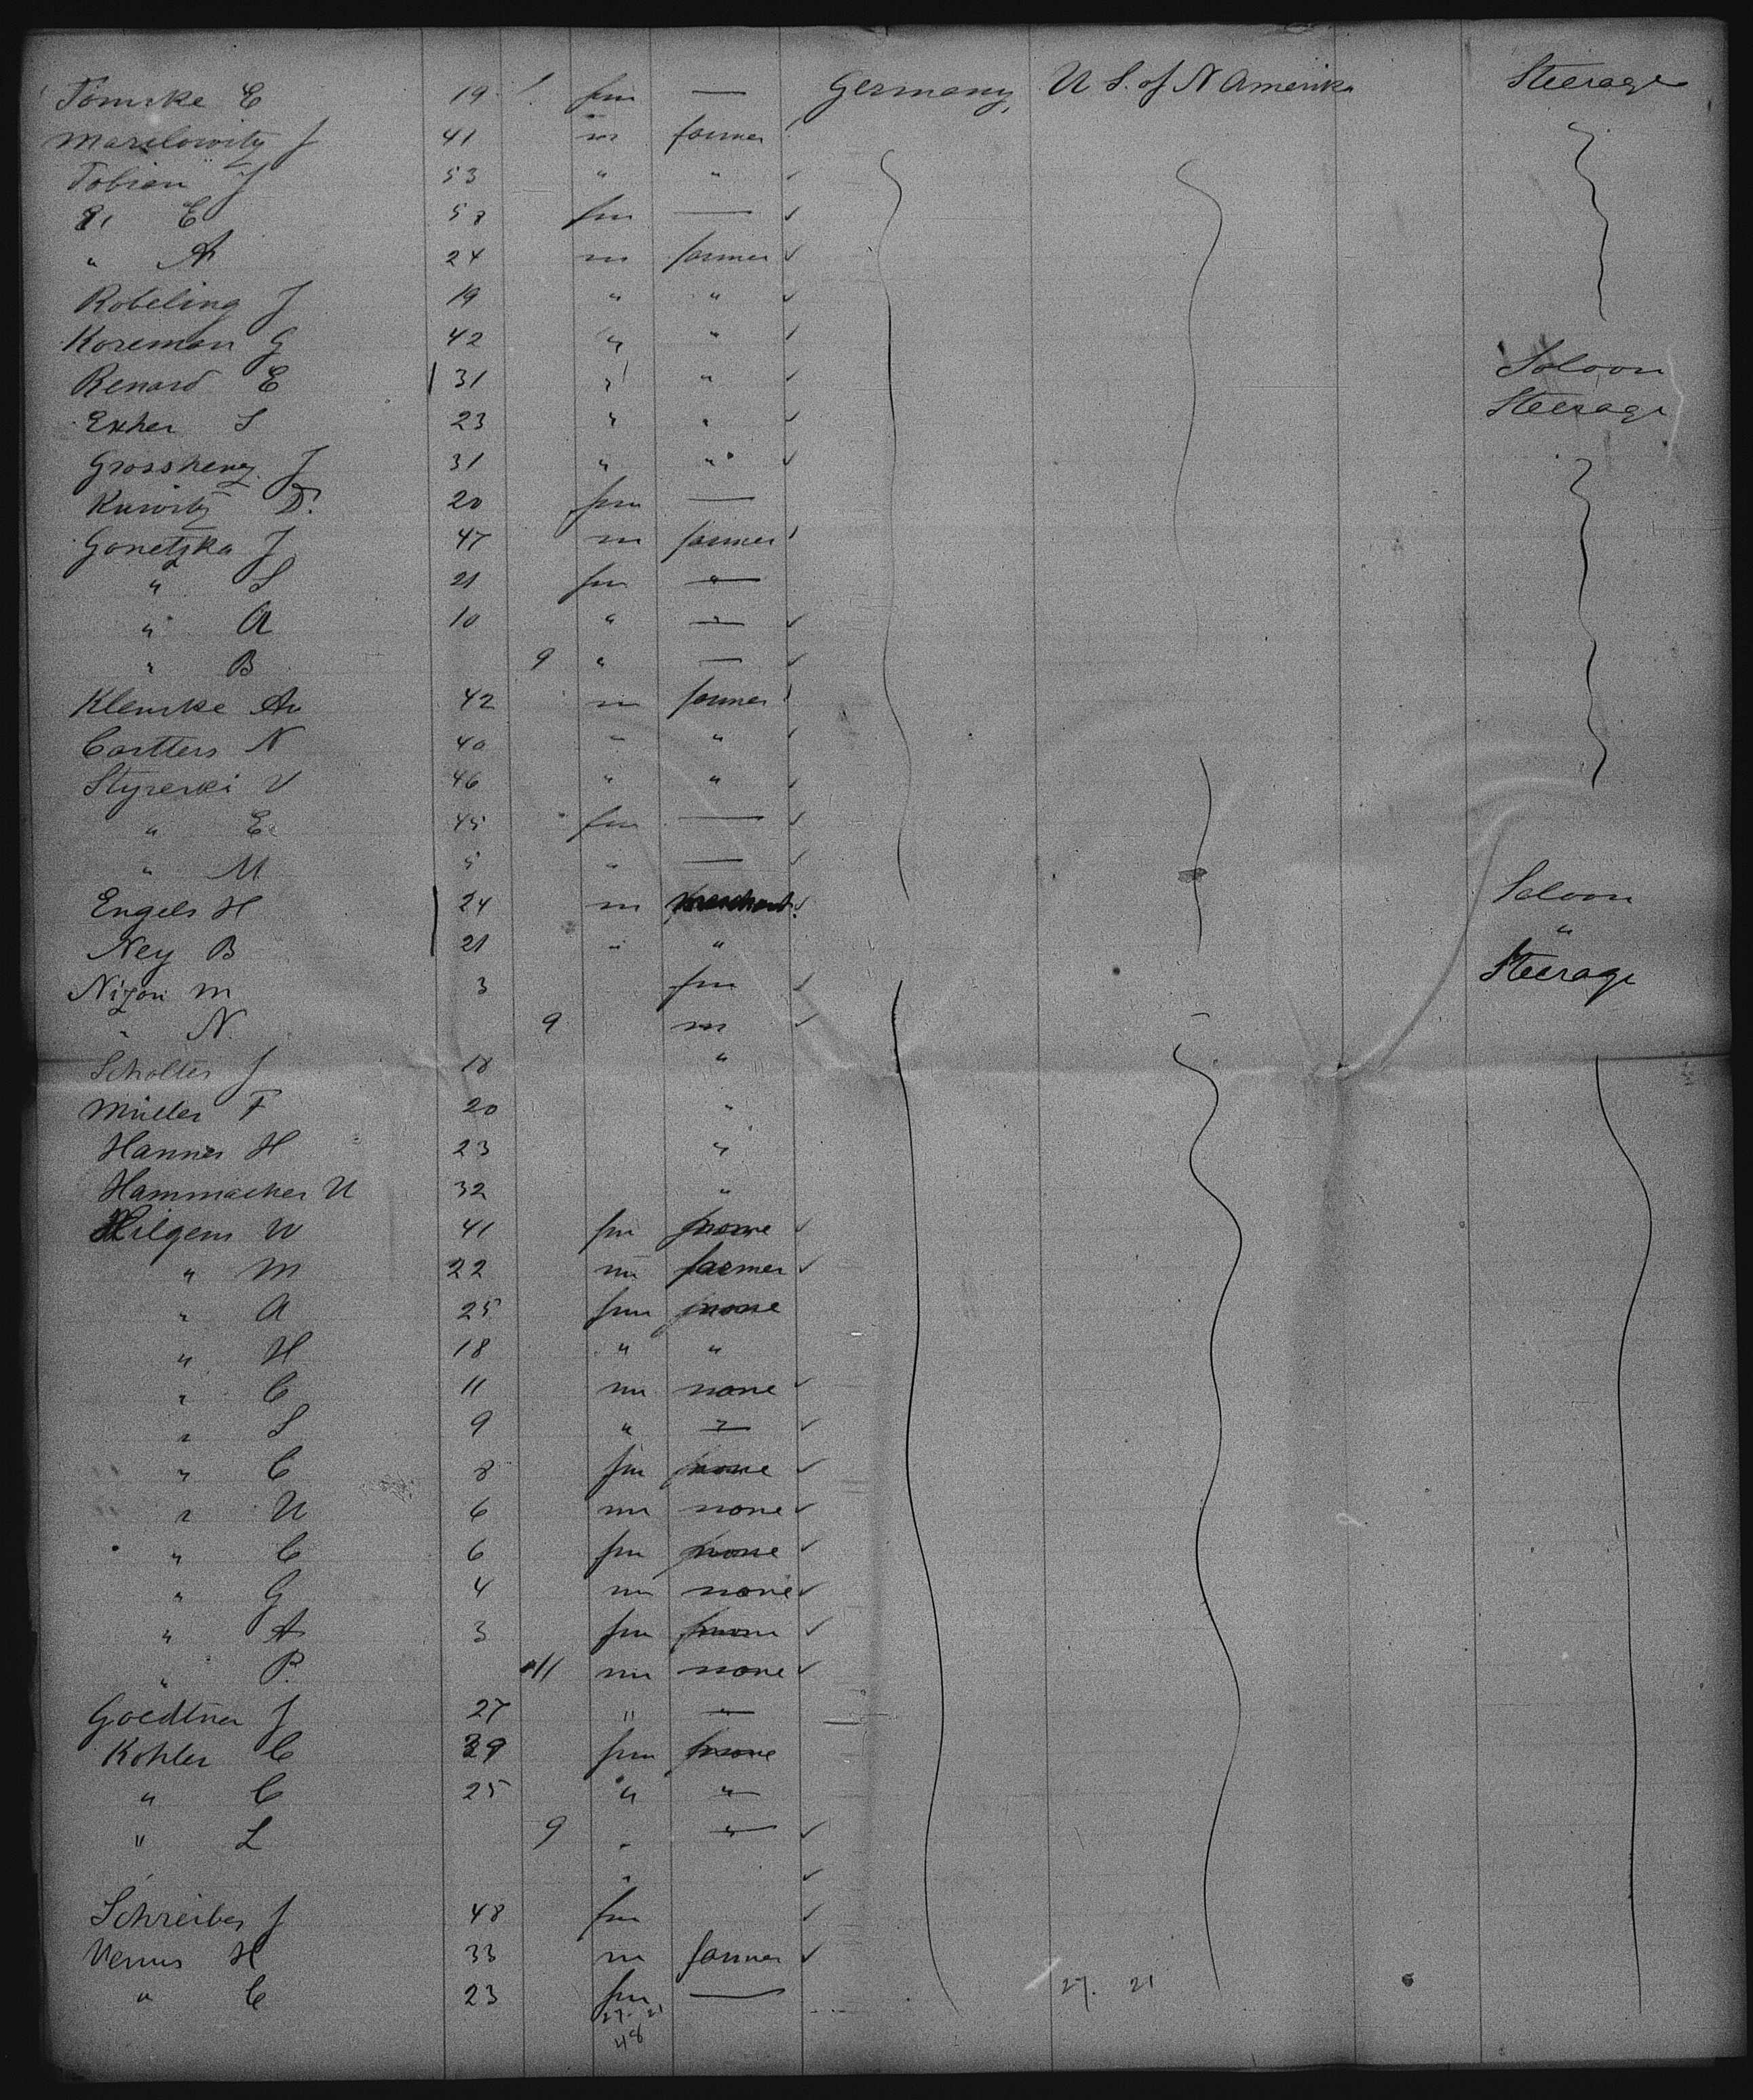 Tomske E 19 fm — Germany, U S. of N Amerika Steerage
Marslowitz J 41 m farmer
Tobian J 53 " "
E 58 fm —
" A 24 m farmer
Robeling J 19 " "
Koreman G 42 " "
Renard E 31 " " Saloon
Exher S 23 " " Steerage
Grossheny J 31 " "
Kuwitz D. 20 fm —
Gonetzka J 47 m farmer
" S 21 fm "
" A 10 " "
" B 9 " —
Klemske 42 m farmer
Cartters N 40 " "
Styreski V 46 " "
" E 45 fm —
" M 5 " —
Engels H 24 m merchant Saloon
Ney B 21 " " "
Nizon m 3 fm Steerage
" N. 9 m
Scholter J 18 "
Müller F 20 "
Hannes H 23 "
Hammacher U 32 "
Hilgens W 41 fm none
" M 22 m farmer
" A 25 fm none
" H 18 " "
" C 11 m none
" S 9 " "
" C 8 fm none
" U 6 m none
" C 6 fm none
" G 4 m none
" A 3 fm none
" P. 11 m none
Goedtner J 27 " "
Kohler C 29 fm none
" C 25 " "
" L 9 " "
"
Schreiber J 48 fm
Venus H 33 m farmer
" C 23 fm —
27. 21 27. 21
48